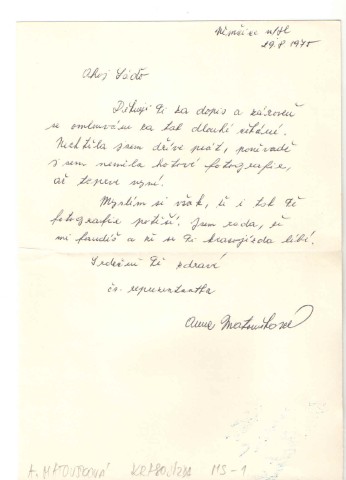 19.8 1975
Ahoj Láďo
Děkuji Ti za dopis a zároveň
se omlouvám za tak dlouhé
Nechtěla jsem dříve psát, poněvadž
jsem neměla hotové fotografie,
až teprve nyní.
Myslím si však, že i tak Tě
fotografie potěší. Jsem ráda, že
mi fandíš a že se Ti krasojízda líbí.
Srdečně Tě zdraví
čs. reprezentantka
A. MATOUŠKOVÁ KRASOJÍZDA MS-1